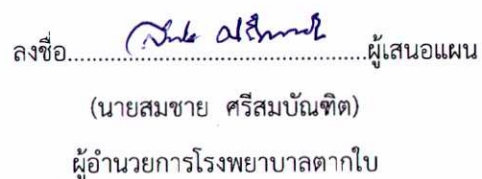 ลงชื่อ......................................................ผู้เสนอแผน
(นายสมชาย ศรีสมบัณฑิต)
ผู้อำนวยการโรงพยาบาลตากใบ